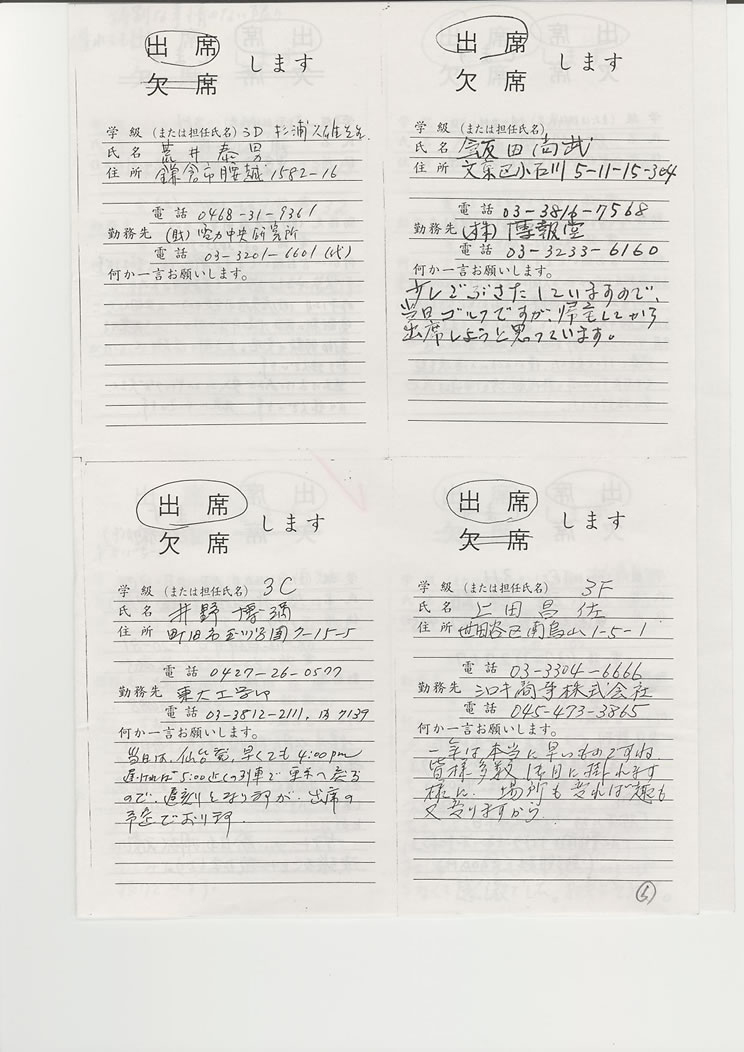 出席
欠席
します
学級(または担任氏名) 3D 杉浦 先生
氏名 荒井 泰男
住所 鎌倉市腰越 1582-16
電話 0468-31-9361
勤務先 (財)電力中央研究所
電話 03-3201-6601(代)
何か一言お願いします。
出席
欠席
します
学級(または担任氏名)
氏名 飯田尚武
住所 文京区小石川 5-11-15-304
電話 03-3816-7568
勤務先 (株)博報堂
電話 03-3233-6160
何か一言お願いします。
少しごぶさたしていますので、
当日ゴルフですが、帰宅してから
出席しようと思っています。
出席
欠席
します
学級(または担任氏名) 3C
氏名 井野 博満
住所 町田市玉川学園 7-15-5
電話 0427-26-0577
勤務先 東大工学部
電話 03-3812-2111, 内 7139
何か一言お願いします。
当日は、仙台発、早くても 4:00pm
遅ければ 5:00近くの列車で東京へ戻る
ので、遅刻となり升が、出席の
予定でおり升.
出席
欠席
します
学級(または担任氏名) 3F
氏名 上田昌佐
住所 世田谷区南烏山 1-5-1
電話 03-3304-6666
勤務先 シロキ商事株式会社
電話 045-473-3865
何か一言お願いします。
一年は本当に早いものですね
皆様多数 お目に掛れます
様に. 場所も変れば趣も
又変りますから
6